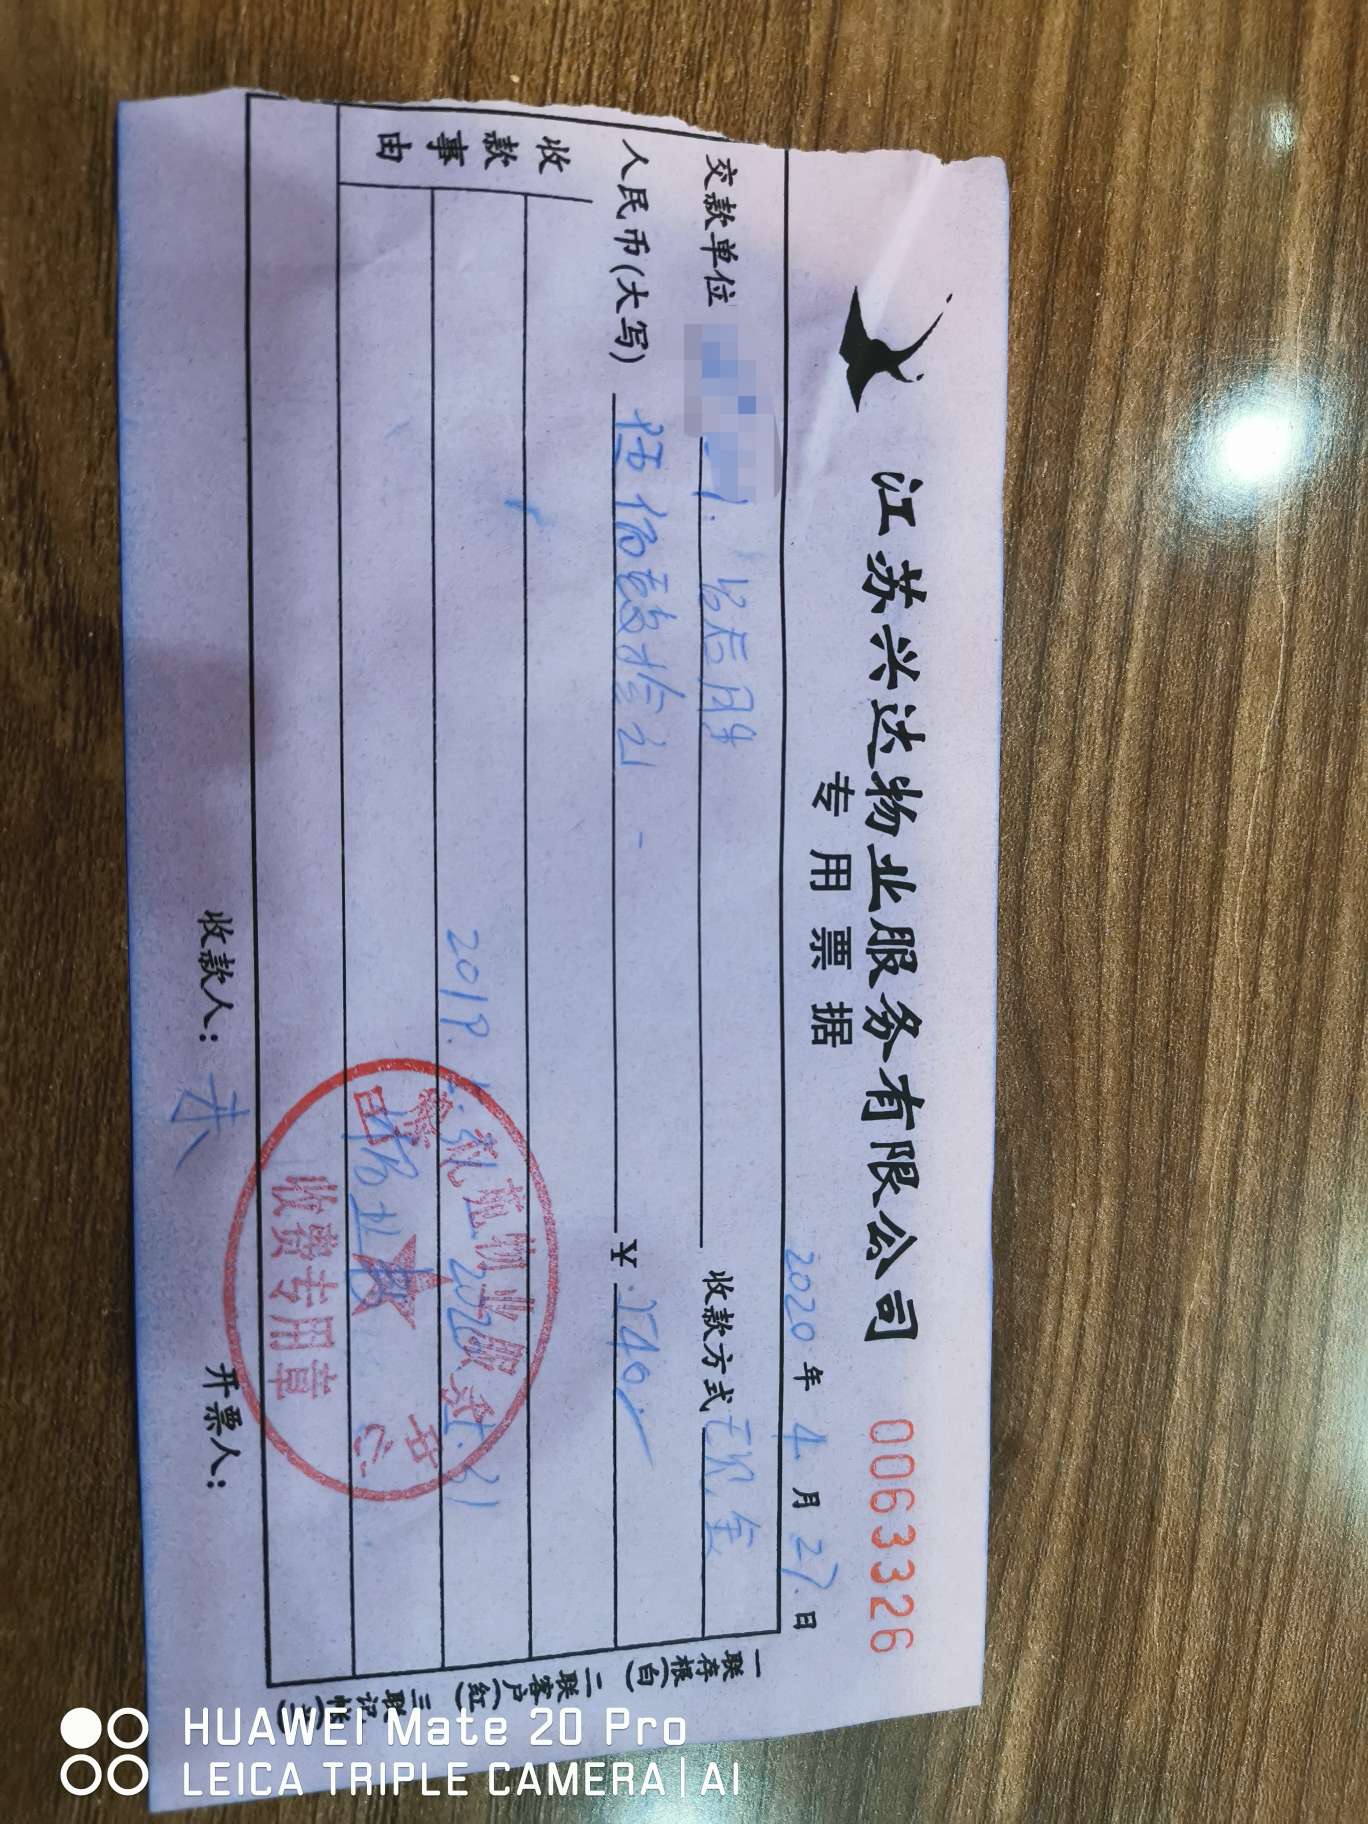 江苏兴达物业服务有限公司 0063326
专用票据 2020年4月27日
交款单位 收款方式 现金
人民币(大写) 伍佰肆拾元 - ¥ 540.
收款事由
2019. 2020.
物业费
物业服务中心
收费专用章
收款人: 开票人:
一联存根(白) 二联客户(红) 三联记帐
HUAWEI Mate 20 Pro
LEICA TRIPLE CAMERA | AI